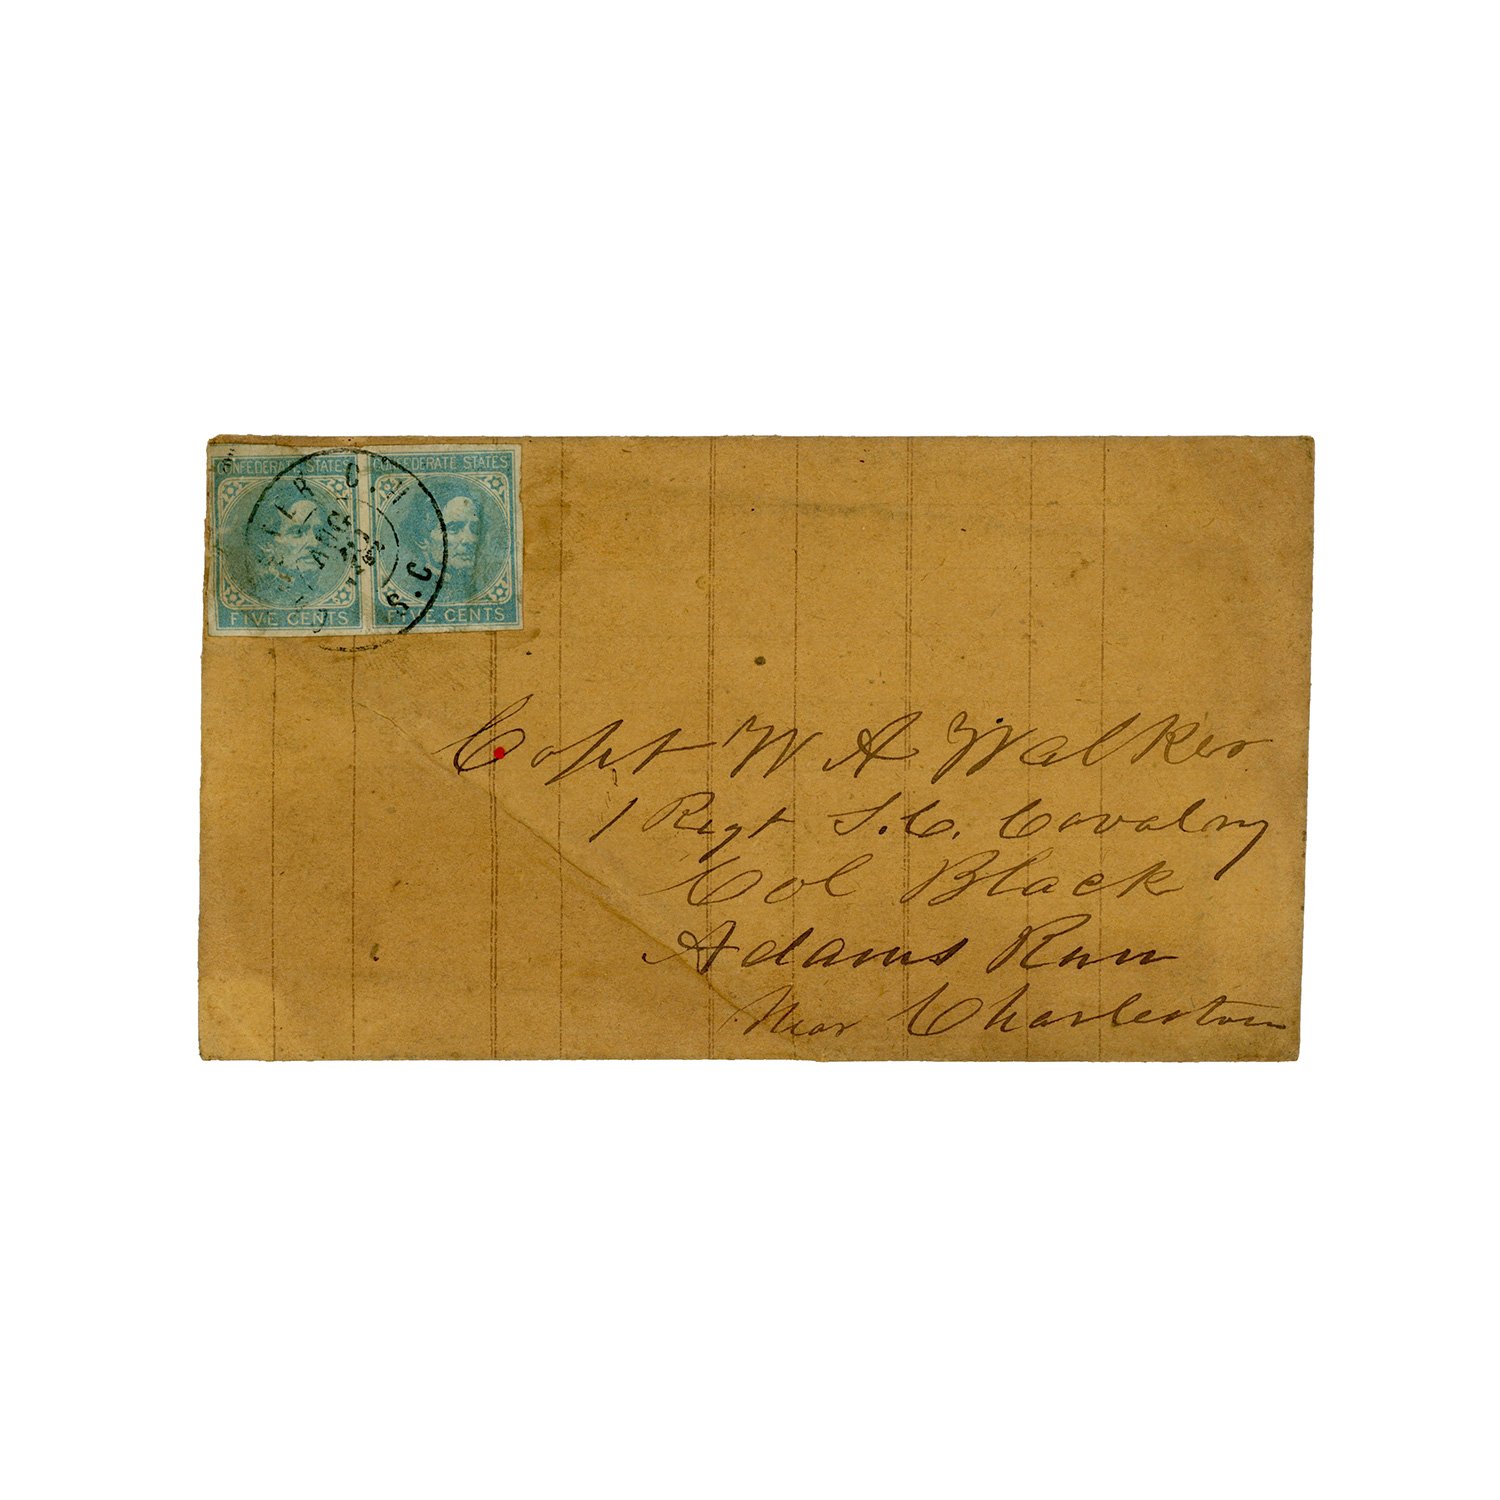 CONFEDERATE STATES CONFEDERATE STATES
AUG
1862
S.C
FIVE CENTS FIVE CENTS
Capt W A Walker
1 Regt S.C. Cavalry
Col Black
Adams Run
Near Charleston